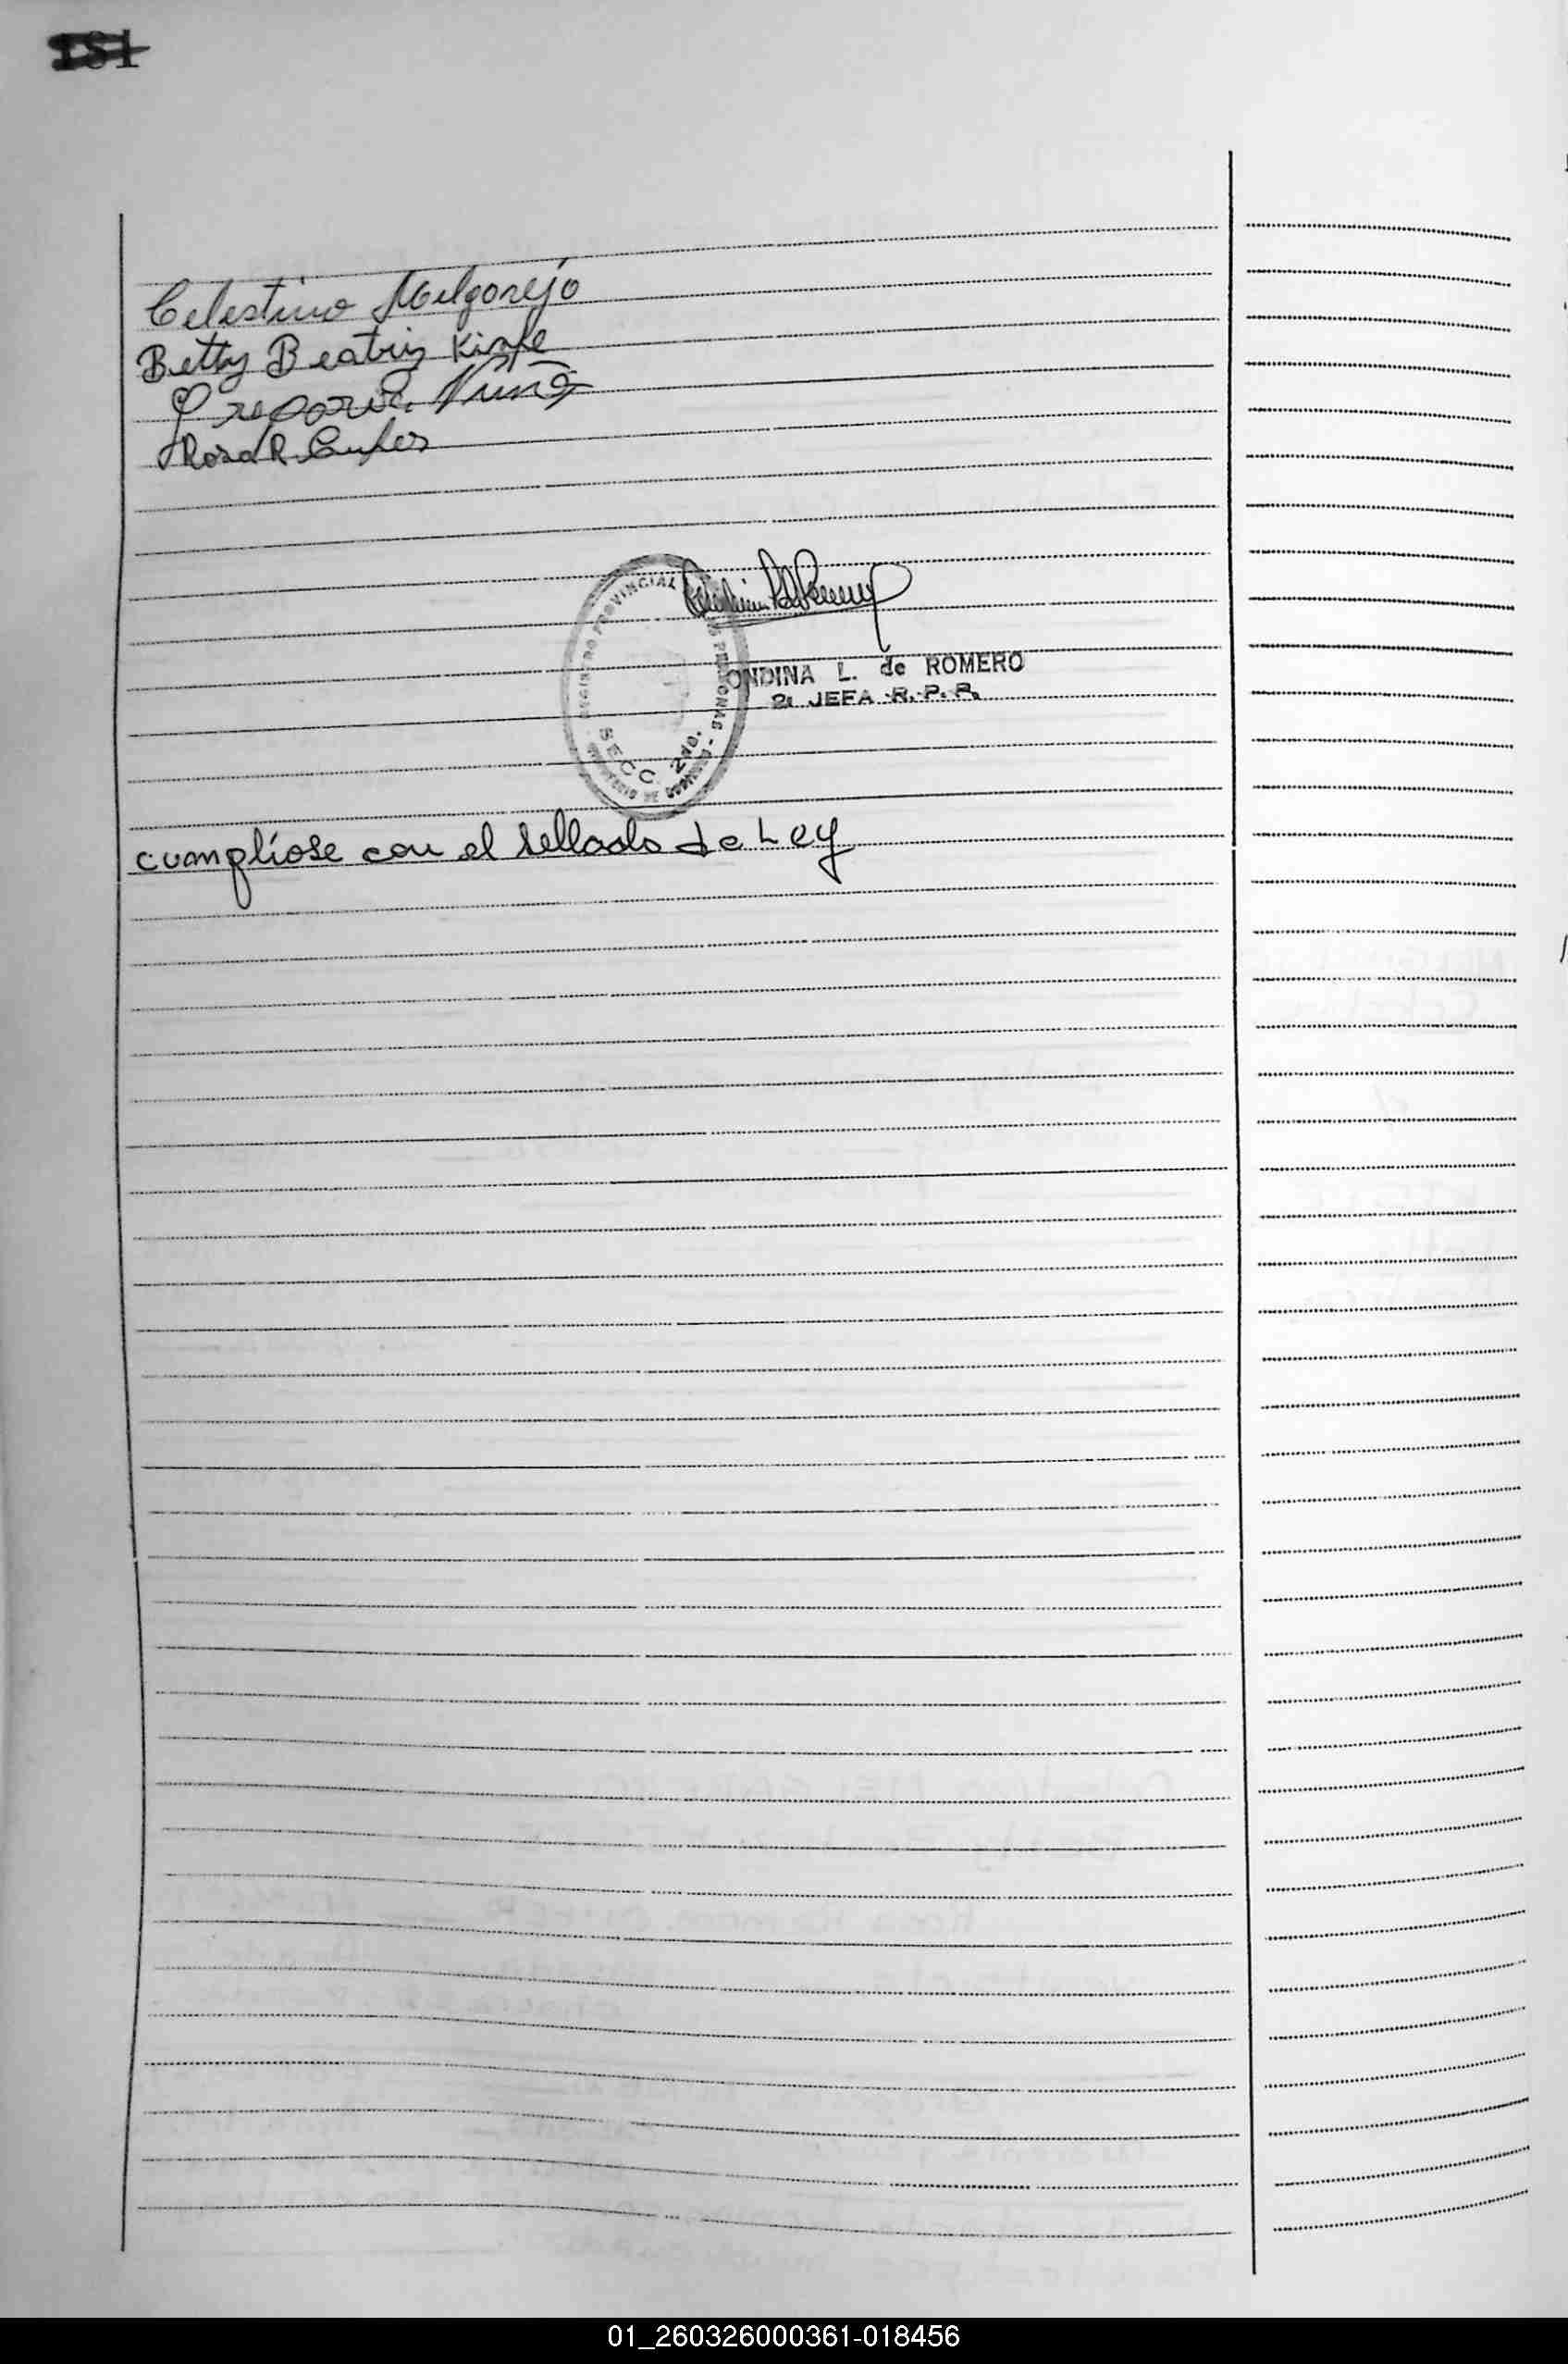 181
Celestino Melgarejo
Betty Beatriz Kinke
Gregoria Núñez
Rosa R.
REGISTRO PROVINCIAL DE LAS PERSONAS - SECC. 2da.
ONDINA L. de ROMERO
2: JEFA R. P. P.
cumplíose con el sellado de Ley
01_260326000361-018456